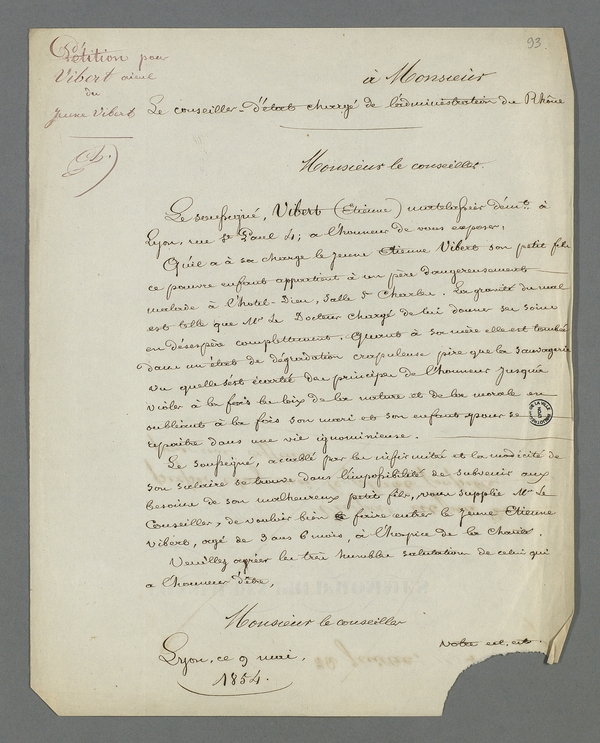 93.
Pétition pour
Vibert aieul
du
Jeune Vibert
à Monsieur
Le conseiller-d'état chargé de l'administration du Rhône
Monsieur le conseiller.
Le soussigné, Vibert (Etienne) matelassier demt. à
Lyon, rue St Paul 4; a l'honneur de vous exposer,
Qu'il a à sa charge le jeune Etienne Vibert son petit fils
ce pauvre enfant appartient à un père dangereusement
malade à l'hotel-Dieu, Salle St Charles. La gravité du mal
est telle que Mr. Le Docteur chargé de lui donner ses soins
en désespère complettement. Quant à sa mère elle est tombée
dans un état de dégradation crapuleuse pire que la sauvagerie
vu quelle s'est écartée des principes de l'honneur jusqu'à
violer à la fois les loix de la nature et de la morale en
oubliant à la fois son mari et son enfant pour se
repaitre dans une vie ignominieuse.
Le soussigné, accablé par les infirmités et la modicité de
son salaire se trouve dans l'impossibilité de subvenir aux
besoins de son malheureux petit fils, vous supplie Mr. Le
Conseiller, de vouloir bien faire entrer le jeune Etienne
Vibert, agé de 3 ans 6 mois, à l'hospice de la Charité.
Veuillez agréer les très humbles salutations de celui qui
a l'honneur d'être,
Monsieur le conseiller
Votre
Lyon, ce 9 mai.
1854.